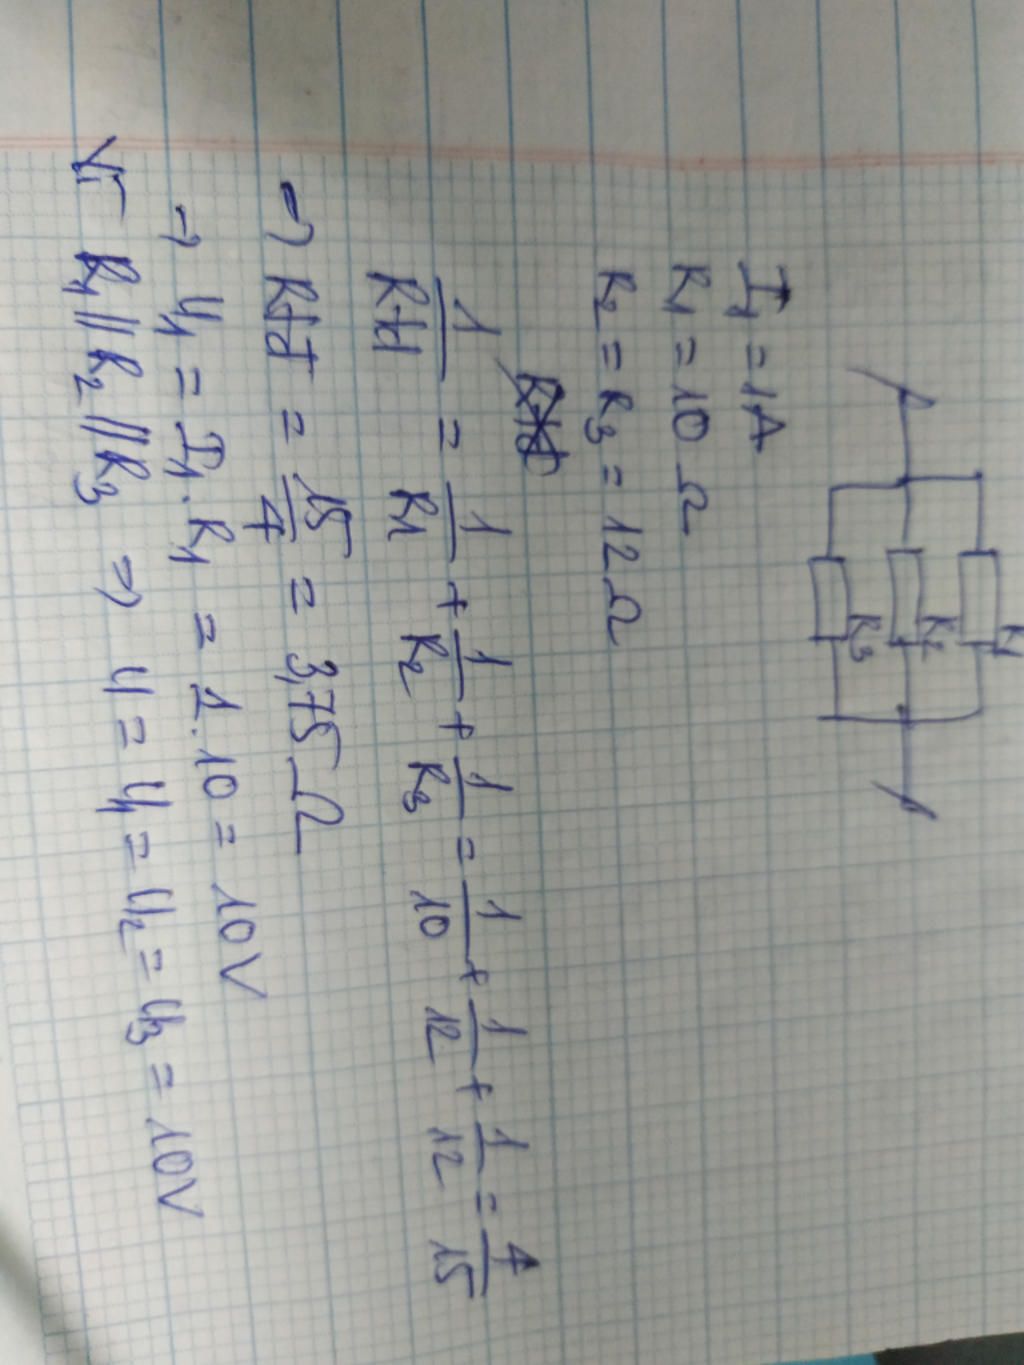 R1
R2
R3
I1 = 1A
R1 = 10 Ω
R2 = R3 = 12 Ω
1/Rtd = 1/R1 + 1/R2 + 1/R3 = 1/10 + 1/12 + 1/12 = 4/15
→ Rtd = 15/4 = 3,75 Ω
→ U1 = I1 . R1 = 1 . 10 = 10V
Vì R1 // R2 // R3 ⇒ U = U1 = U2 = U3 = 10V